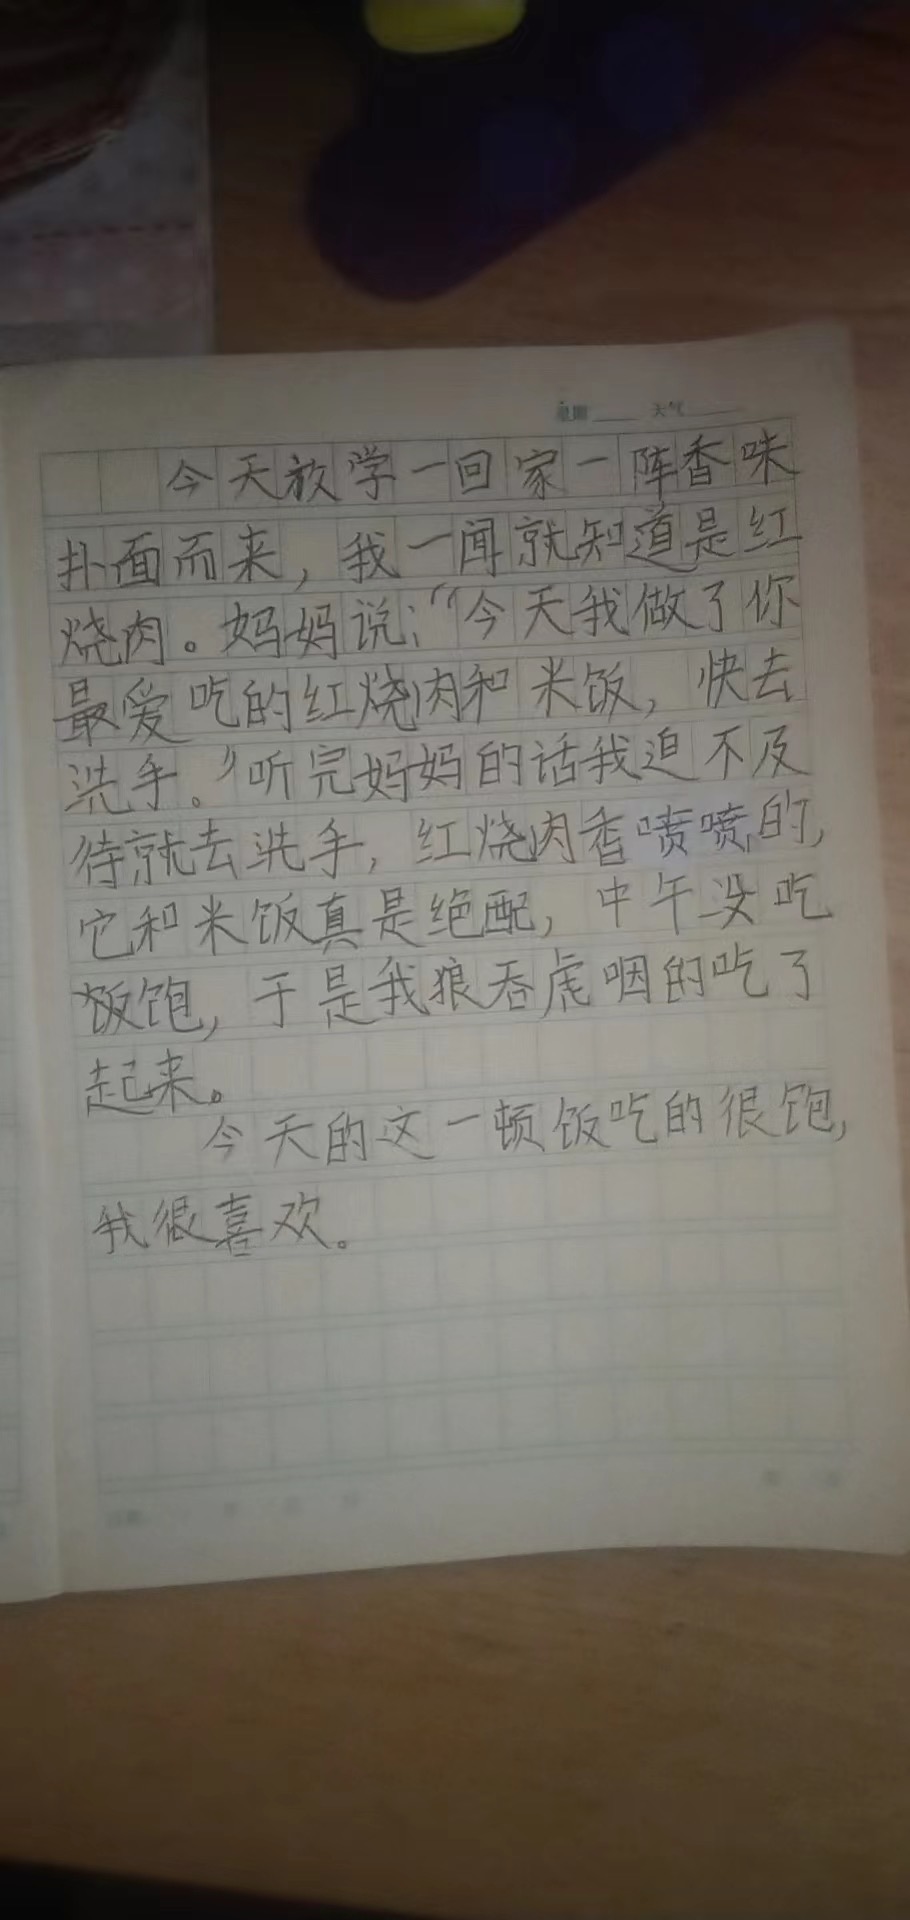 星期 天气
今天放学一回家一阵香味
扑面而来，我一闻就知道是红
烧肉。妈妈说：“今天我做了你
最爱吃的红烧肉和米饭，快去
洗手。”听完妈妈的话我迫不及
待就去洗手，红烧肉香喷喷的，
它和米饭真是绝配，中午没吃
饭饱，于是我狼吞虎咽的吃了
起来。
今天的这一顿饭吃的很饱，
我很喜欢。